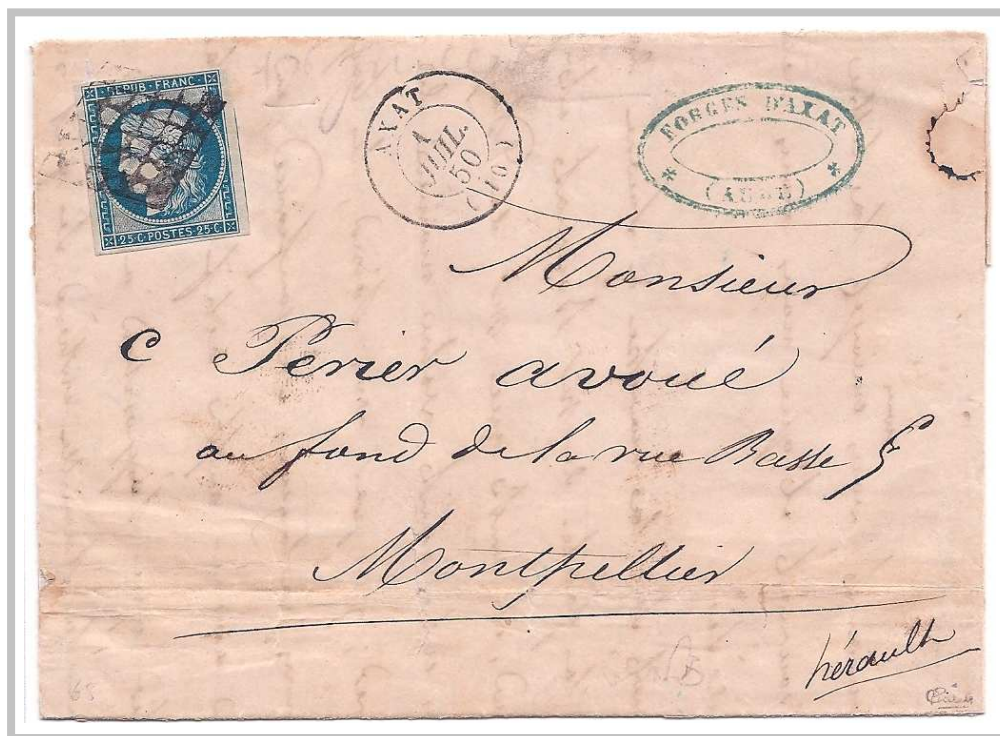 REPUB·FRANC·
25·C·POSTES·25·C·
AXAT
1
JUIL.
50
(10)
FORGES D'AXAT
(AUDE)
Monsieur
C Perier avoué
au fond de la rue Basse
Montpellier
hérault
68